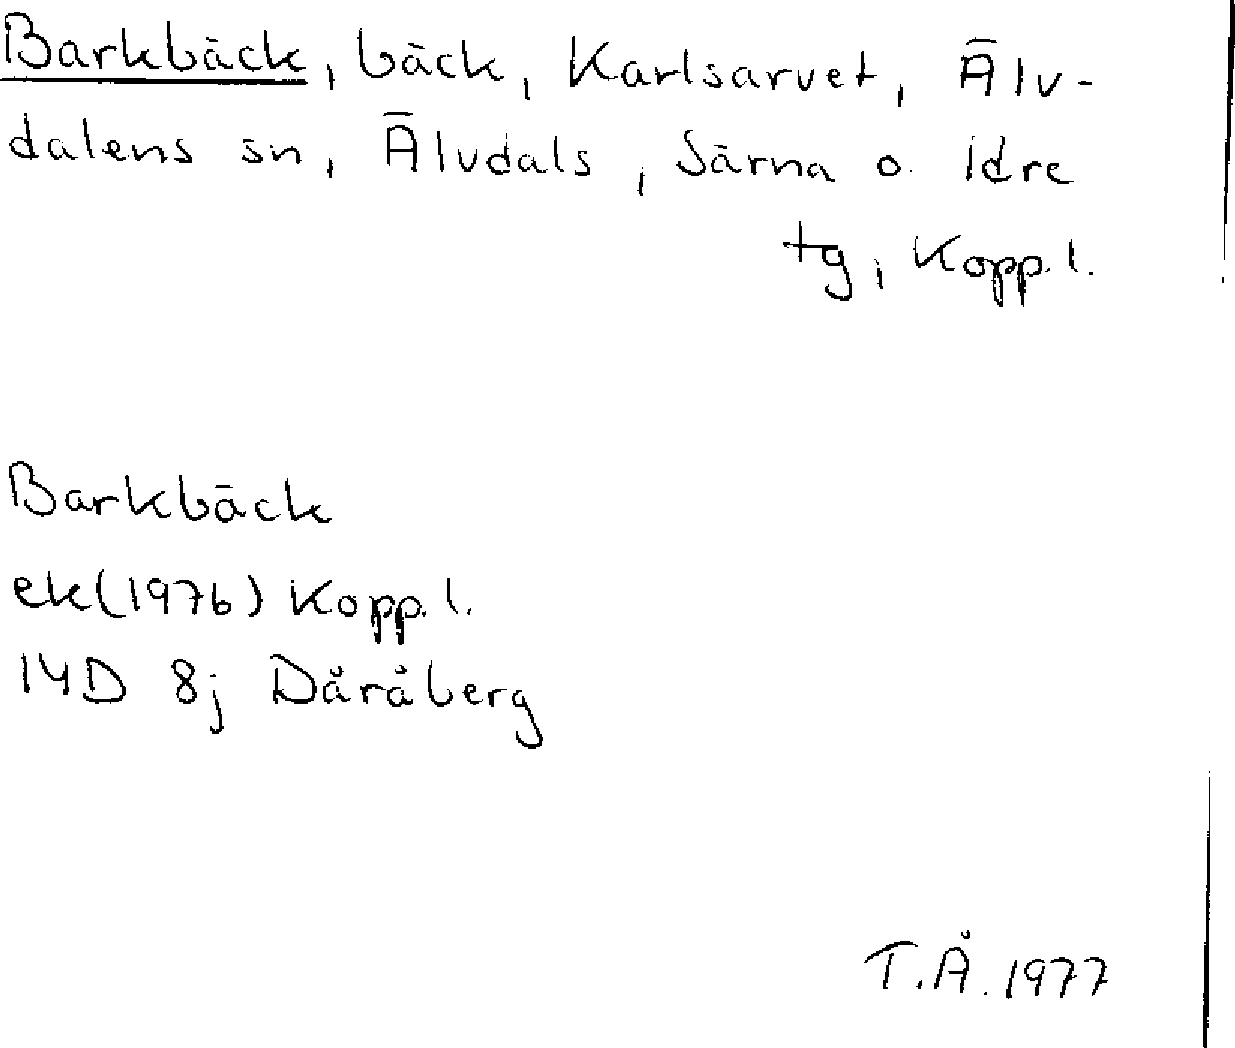 Barkbäck, bäck, Karlsarvet, Älv-
dalens sn, Älvdals, Särna o. Idre
tg, Kopp. l.
Barkbäck
ek(1976) Kopp. l.
14D 8j Dåråberg
T.Å. 1977